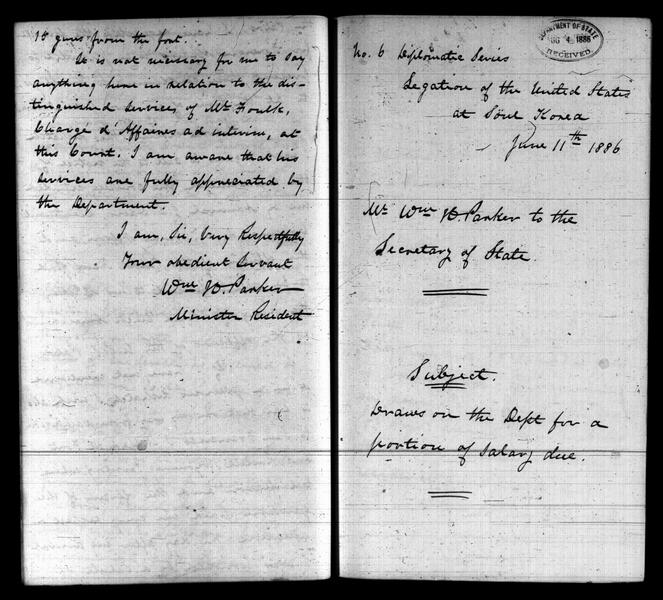 15 guns from the fort.
It is not necessary for me to say
anything here in relation to the dis-
tinguished services of Mr Foulk,
Chargé d'Affaires ad interim, at
this Court. I am aware that his
services are fully appreciated by
the Department.
I am, Sir, Very Respectfully
Your obedient Servant
Wm H. Parker
Minister Resident
DEPARTMENT OF STATE
1886
RECEIVED
No. 6 Diplomatic Series
Legation of the United States
at Söul Korea
June 11th 1886
Mr. Wm H. Parker to the
Secretary of State.
Subject.
Draws on the Dept for a
portion of salary due.